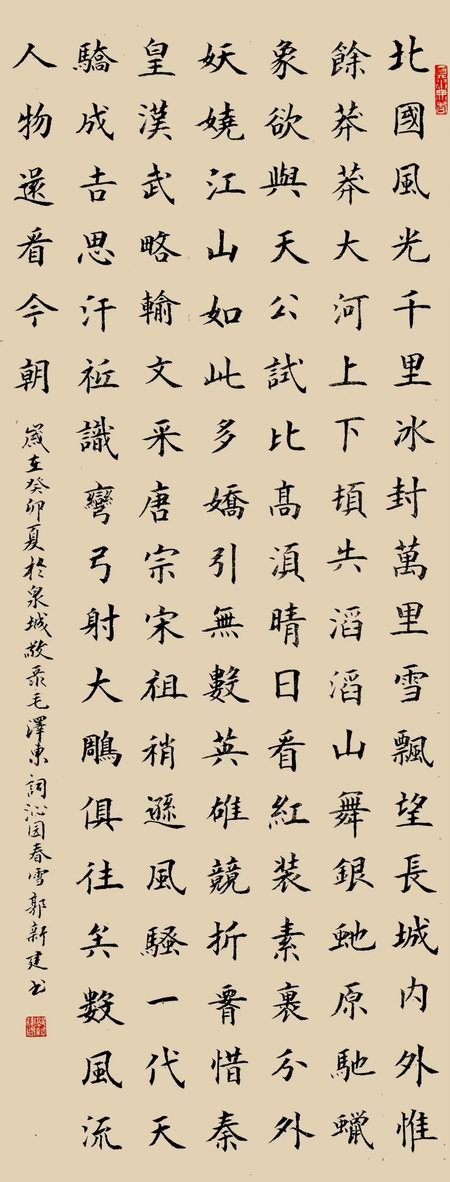 北國風光千里冰封萬里雪飄望長城内外惟
餘莽莽大河上下頓失滔滔山舞銀虵原馳蠟
象欲與天公試比高須晴日看紅裝素裹分外
妖嬈江山如此多嬌引無數英雄競折腰惜秦
皇漢武略輸文采唐宗宋祖稍遜風騷一代天
驕成吉思汗祗識彎弓射大鵰俱往矣數風流
人物還看今朝
歲在癸卯夏於泉城敬录毛澤東詞沁园春雪郭新建书